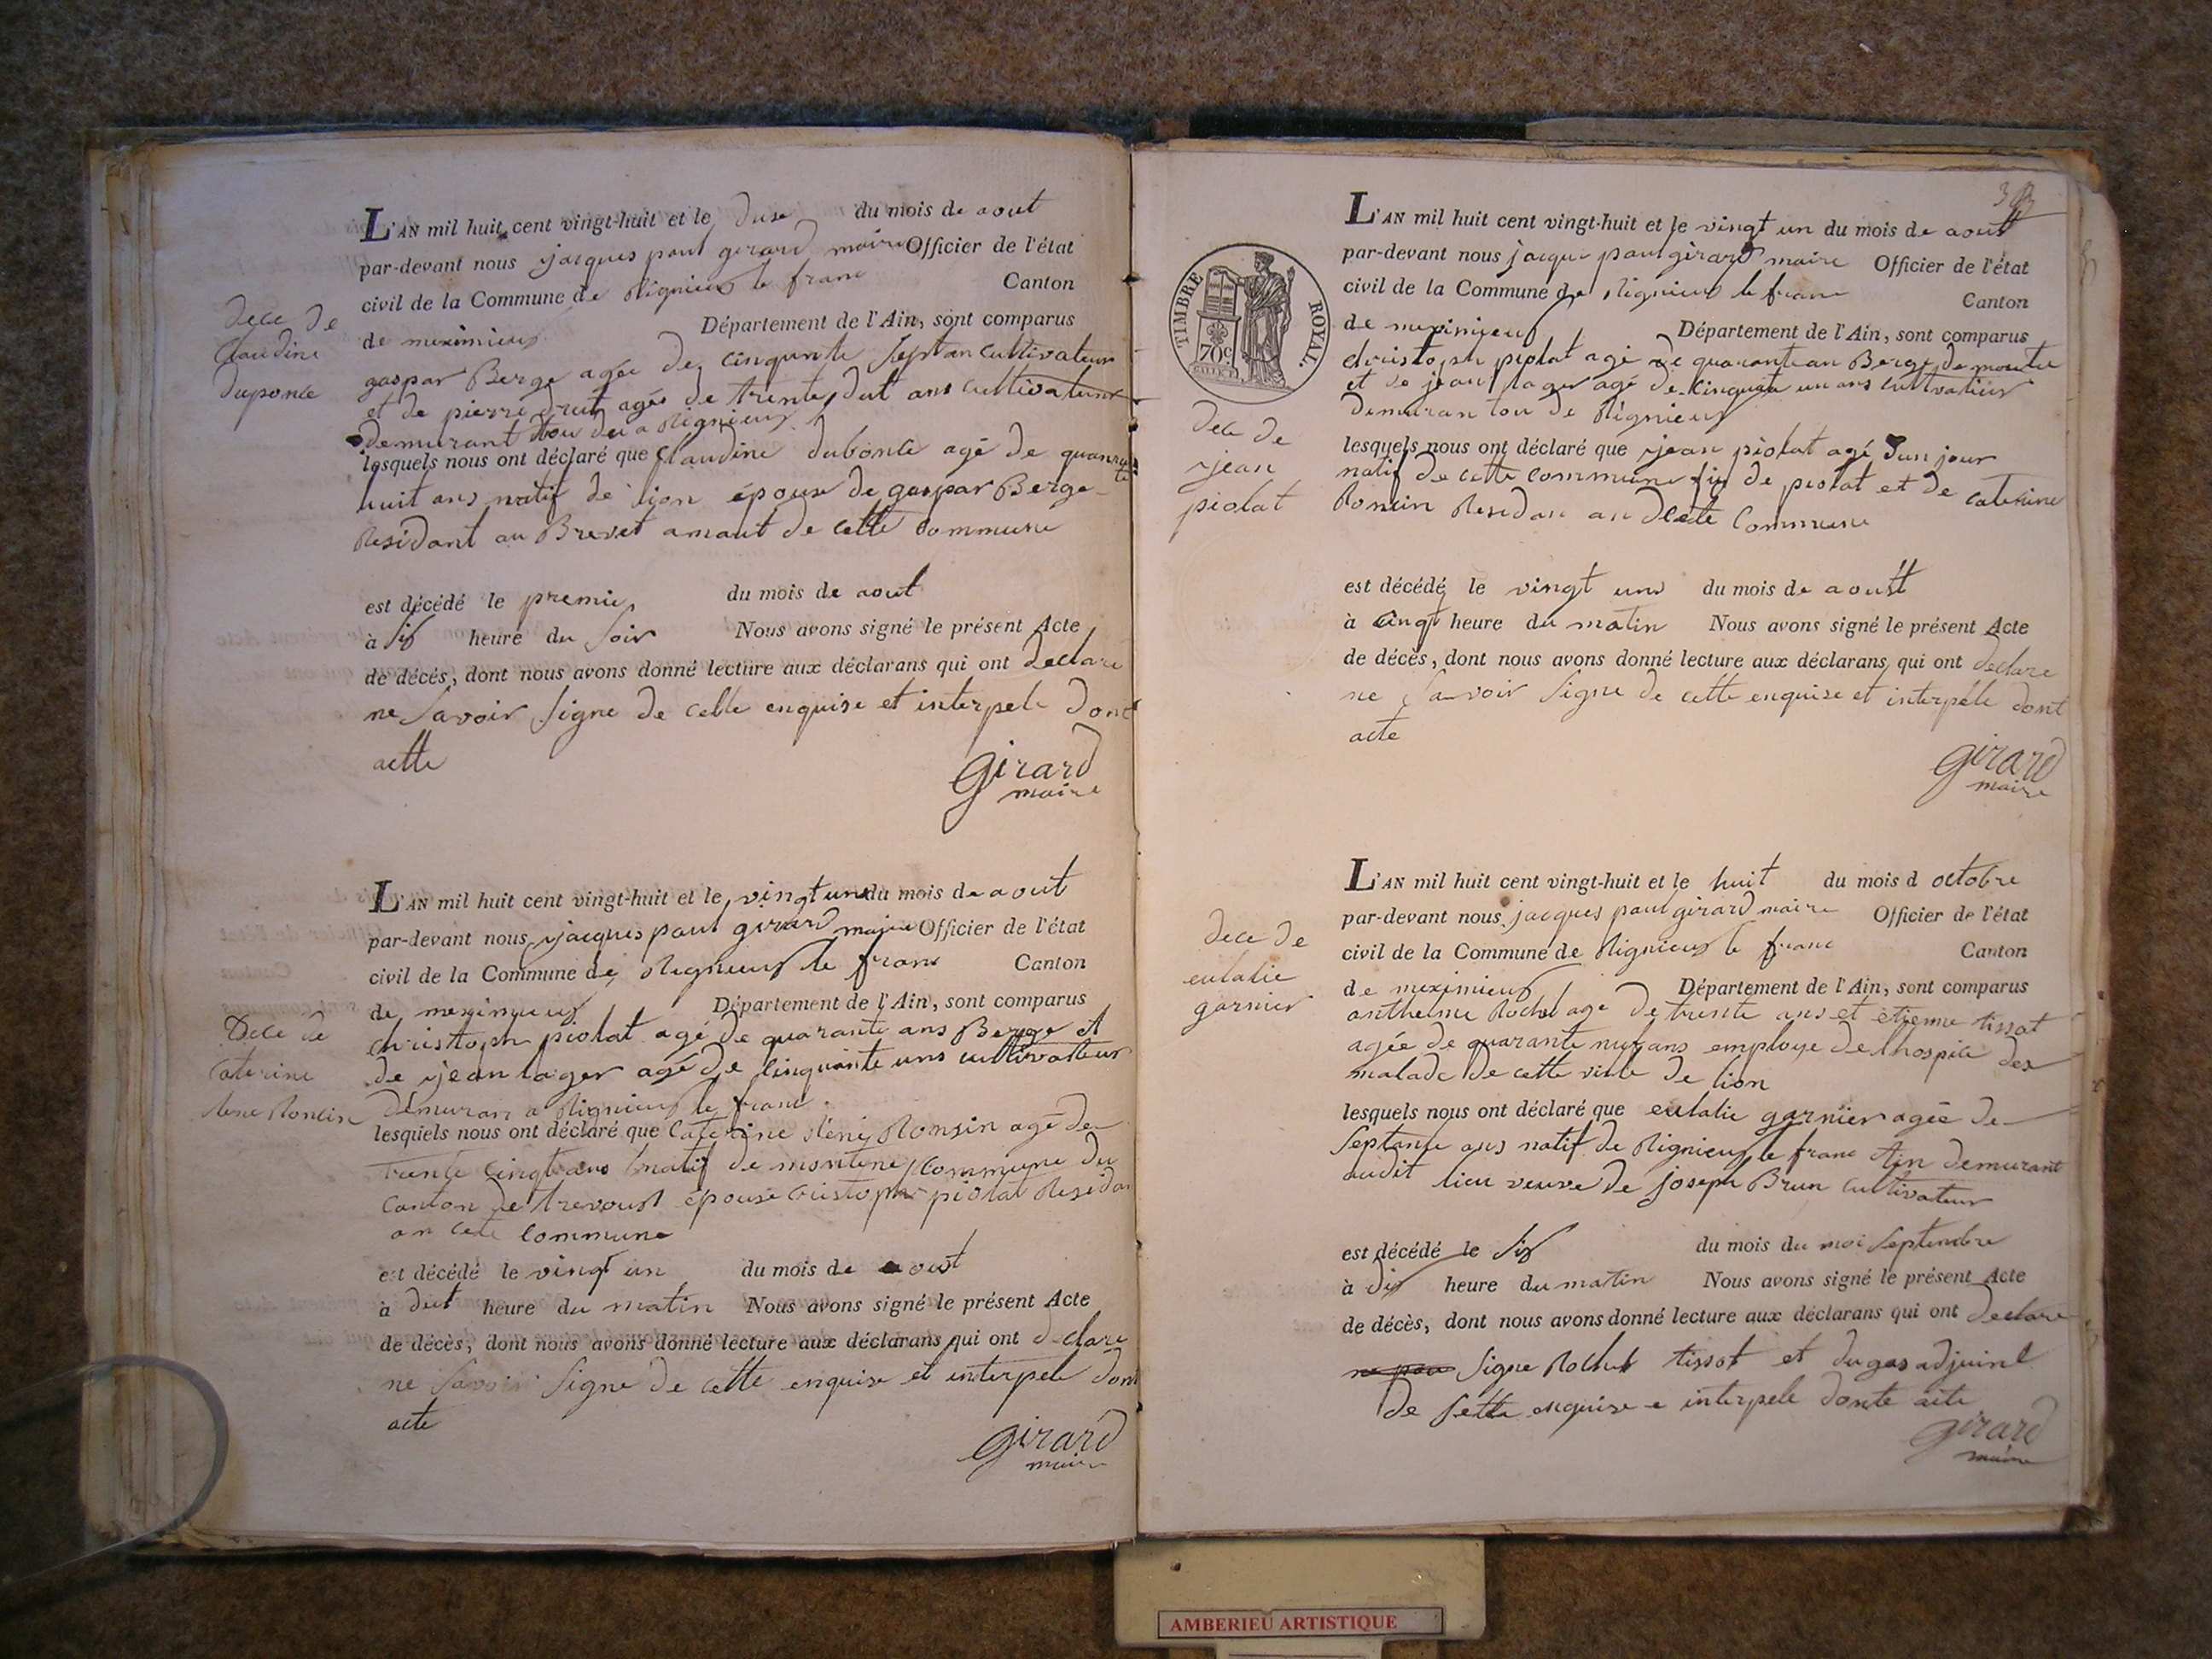 L'AN mil huit cent vingt-huit et le duse du mois de aout
par-devant nous jacques paul girard maire Officier de l'état
civil de la Commune de Rignieux le franc Canton
de meximieux Département de l'Ain, sont comparus
gaspar Berge agée de cinquante septan cultivateur
et de pierre drut agée de trente duit ans cultivateur
demurant tou deu a Rignieux
lesquels nous ont déclaré que Claudine dubonte agé de quarante
huit ans natif de lion épouse de gaspar Berge
Residant au Brevet amaut de cette commune
est décédé le premie du mois de aout
à six heure du soir Nous avons signé le présent Acte
de décès, dont nous avons donné lecture aux déclarans qui ont declare
ne savoir signe de cette enquise et interpele dont
actte
girard
maire
dece de
Claudine
duponte
L'AN mil huit cent vingt-huit et le vingt un du mois de aout
par-devant nous jacques paul girard maire Officier de l'état
civil de la Commune de Rignieux le franc Canton
de meximieux Département de l'Ain, sont comparus
christoph piolat agé de quarante ans Berge et
de jean lager agé de cinquante uns cultivatteur
demuran a Rignieux le franc
lesquels nous ont déclaré que Caterine Rene Ronsin agé de
trente cingt ans natif de montene Commune du
Canton de trevoust épouse Cristoph piolat Residan
an cete Commune
est décédé le vingt un du mois de aoust
à duit heure du matin Nous avons signé le présent Acte
de décès, dont nous avons donné lecture aux déclarans qui ont declare
ne savoir signe de cette enquise et interpele dont
acte
girard
maire
Dece de
Caterine
Rene Roncin
L'AN mil huit cent vingt-huit et le vingt un du mois de aoust
par-devant nous jacque paul girard maire Officier de l'état
civil de la Commune de Rignieux le franc Canton
de meximieux Département de l'Ain, sont comparus
christoph piolat agé de quarantean Berge de moutu
et de jean lager agé de cinquate un ans cultivatieur
demuran tou de Rignieux
lesquels nous ont déclaré que jean piolat agé d'un jour
natif de cette commune fis de piolat et de caterine
Roncin Residan an dcete Commune
est décédé le vingt un du mois de aoustt
à cinqt heure du matin Nous avons signé le présent Acte
de décès, dont nous avons donné lecture aux déclarans qui ont declare
ne savoir signe de cette enquise et interpéle dont
acte
girard
maire
TIMBRE ROYAL.
70c
dece de
jean
piolat
L'AN mil huit cent vingt-huit et le huit du mois d octobre
par-devant nous jacques paul girard maire Officier de l'état
civil de la Commune de Rignieux le franc Canton
de meximieux Département de l'Ain, sont comparus
anthelme Rochet age de trente ans et etienne tissot
agée de quarante nuf ans employe de lhospice des
malade de cette ville de lion
lesquels nous ont déclaré que eulalie garnier agée de
septante ans natif de Rignieux le franc Ain demurant
audit lieu veuve de joseph Brun cultivateur
est décédé le six du mois du moi septembre
à dix heure du matin Nous avons signé le présent Acte
de décès, dont nous avons donné lecture aux déclarans qui ont declare
signe Rochet tissot et dugas adjuint
de sette enquise e interpele donte acte
girard
maire
dece de
eulalie
garnier
AMBERIEU ARTISTIQUE